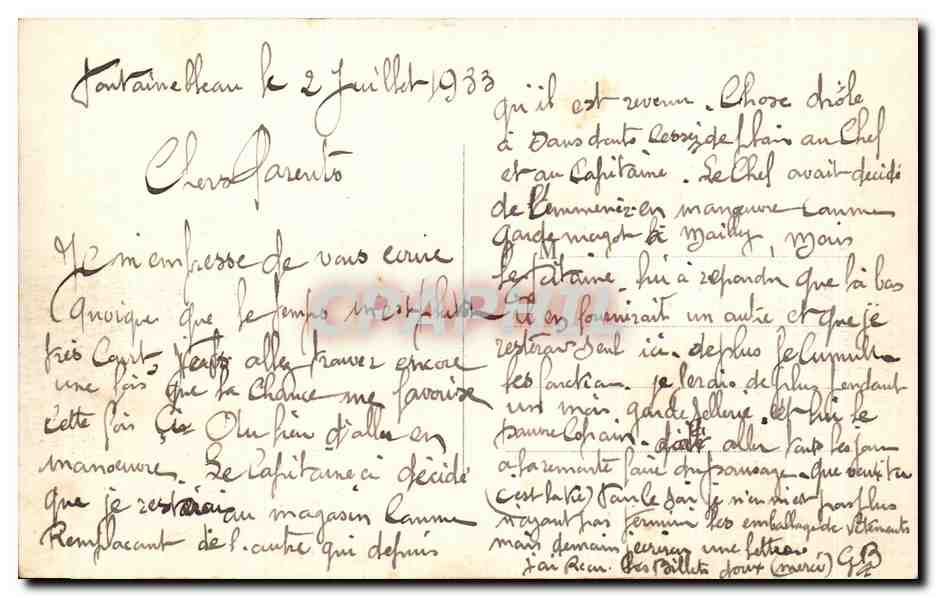 Fontainebleau le 2 Juillet 1933
Chers Parents
Je m'empresse de vous ecrire
Quoique que le temps m'est
très Court allez trouver encore
une fois que la Chance me favorise
cette fois ci Au lieu d'aller en
manoeuvre Le Capitaine à décidé
que je resterai au magasin Comme
Remplacant de l'autre qui depuis
qu'il est revenu. Chose drôle
à au Chef
et au Capitaine. Le Chef avait décidé
de l'emmener en manoeuvre Comme
garde magot à Mailly, Mais
le Capitaine lui à repondu que là bas
il en fournirait un autre et que je
resterai seul ici. de plus Je Cumule
les fonction. je serais de plus pendant
un mois garde Sellerie. et lui le
pauvre Copain doit aller tout les jour
a la remonte faire du pansage. Que veux tu
(c'est la vie) Pour le jour je n'en met pas plus
n'ayant pas terminé les emballage de vêtements
mais demain j'ecrirai une lettre
J'ai Recu les Billets doux (merci) GB
CPAPHIL